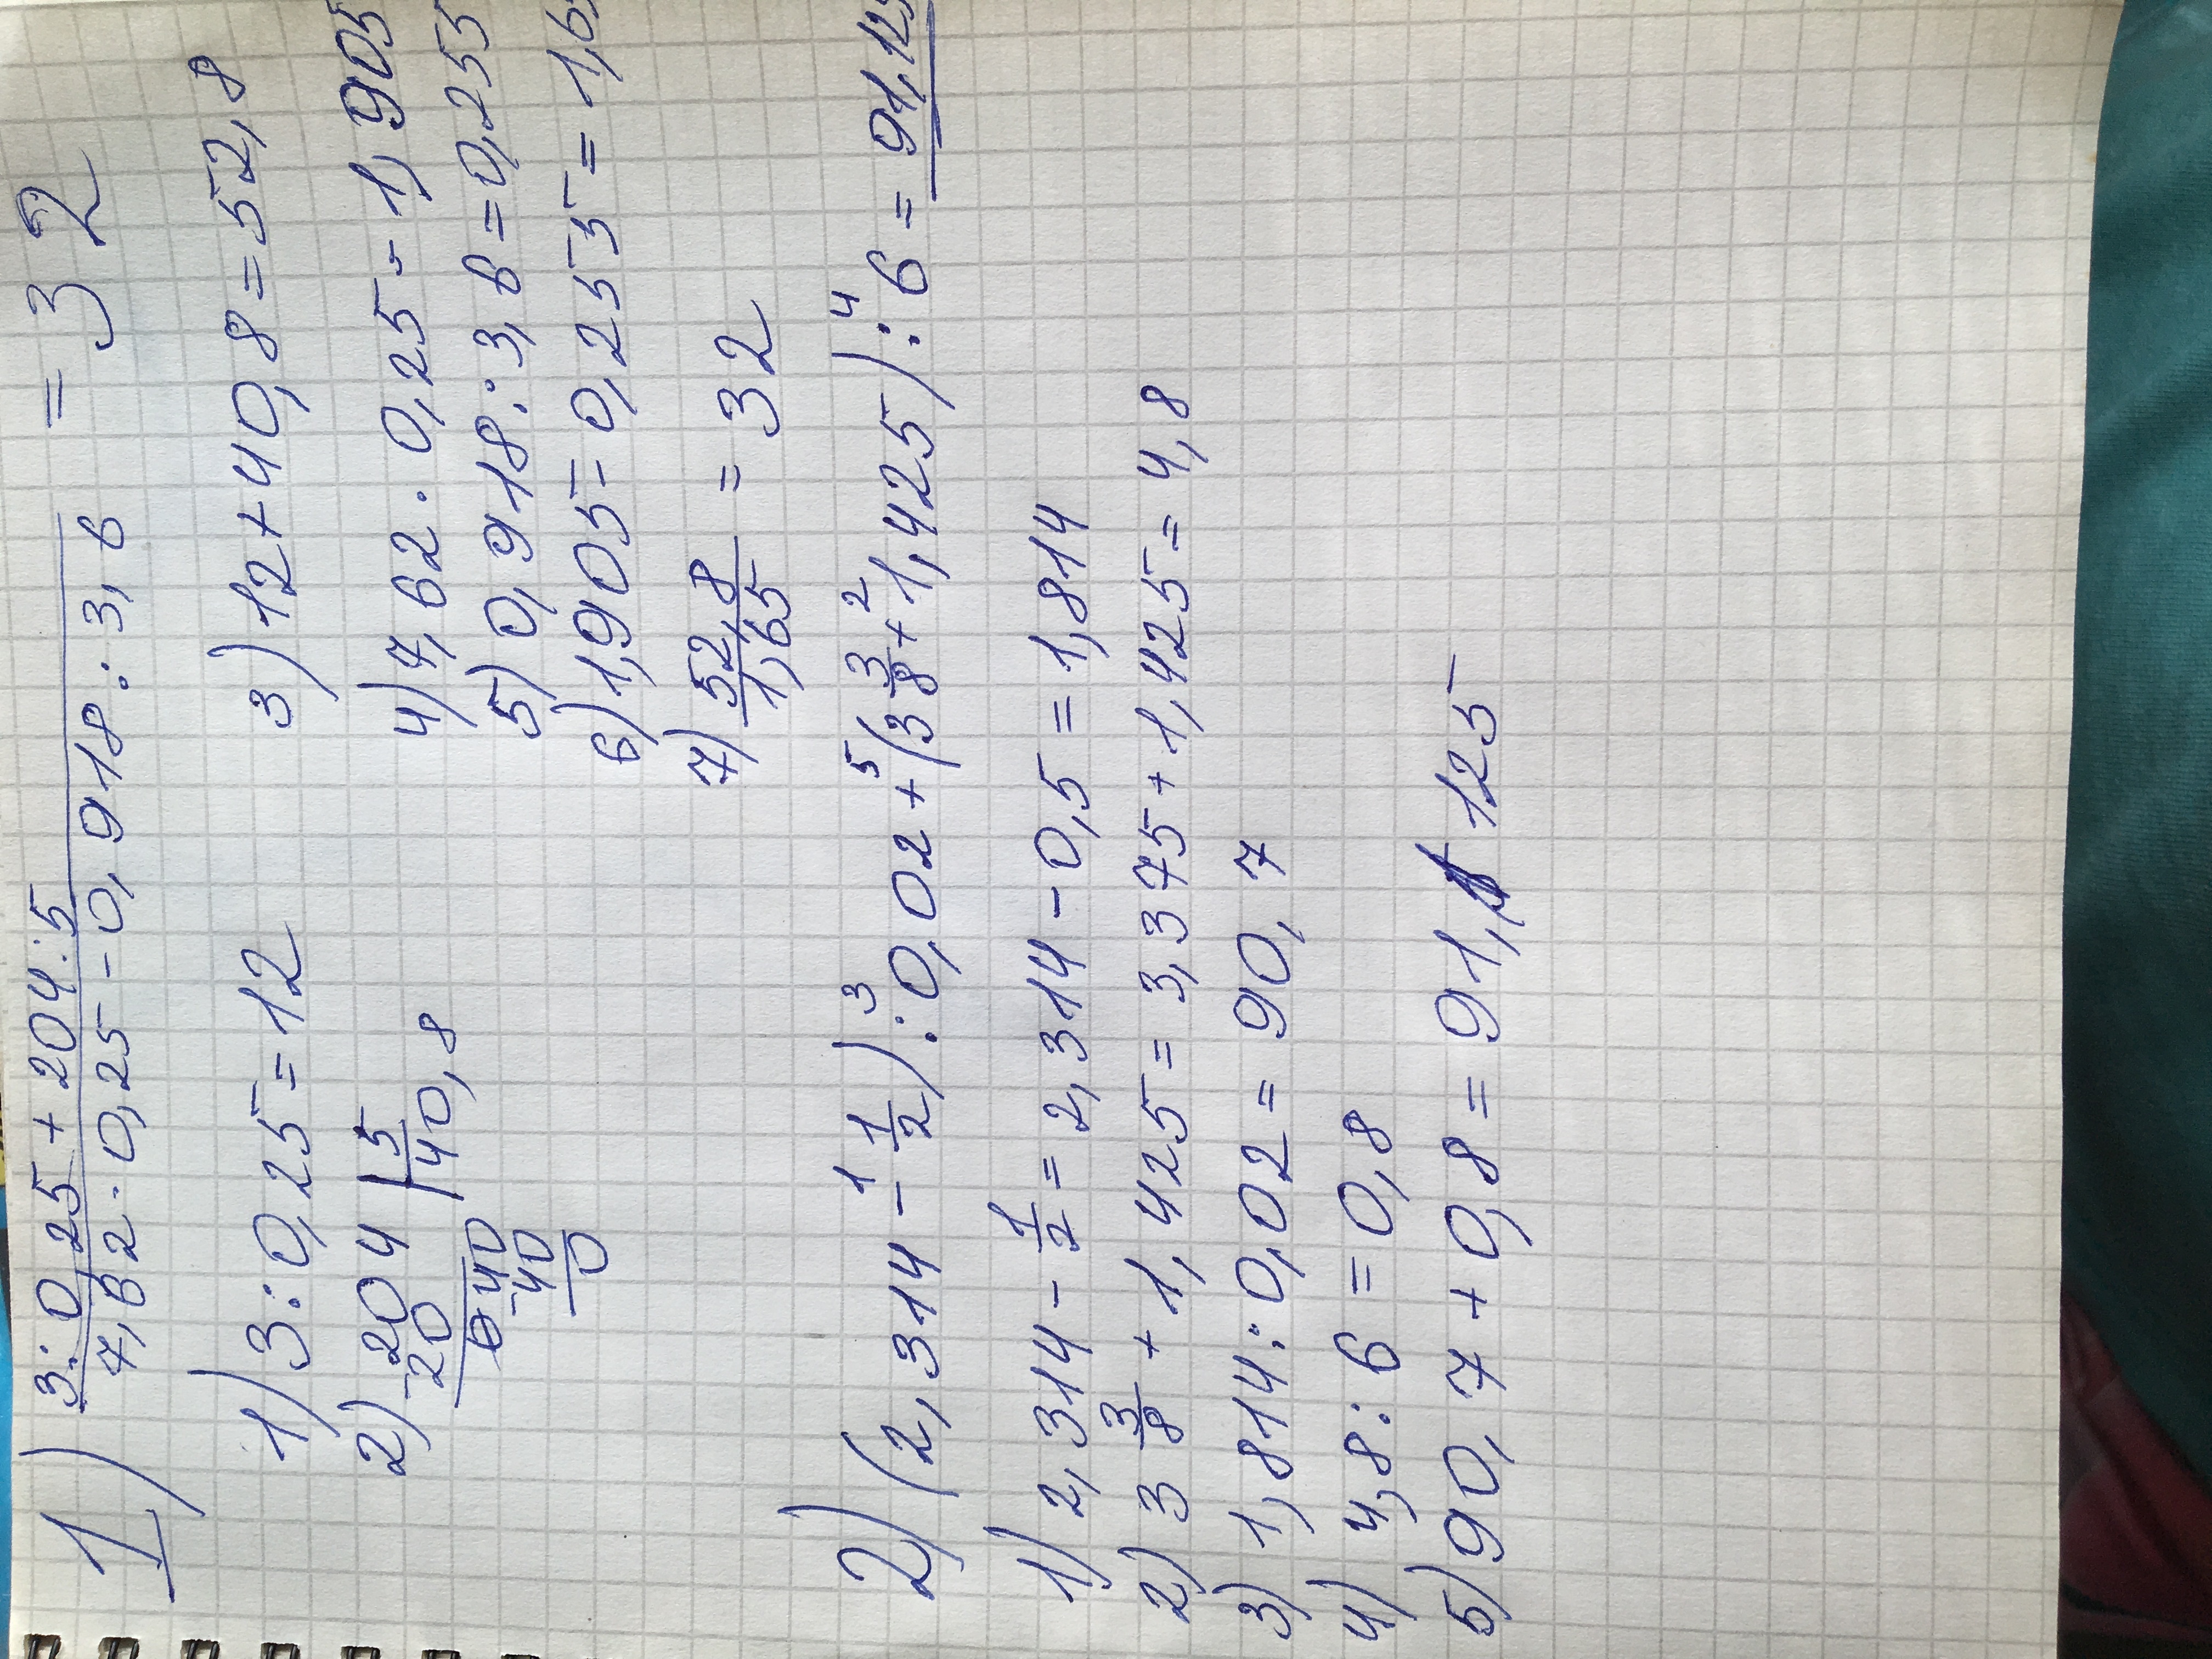 1) 3:0,25 + 204:5 = 32
7,62 · 0,25 - 0,918 : 3,6
1) 3:0,25 = 12
3) 12+40,8 = 52,8
2) 204 | 5
-20 40,8
040
-40
0
4) 7,62 · 0,25 = 1,905
5) 0,918 : 3,6 = 0,255
6) 1,905 - 0,255 = 1,65
7) 52,8/1,65 = 32
2) (2,314 -¹ 1/2) :³ 0,02 +⁵ (3 3/8 +² 1,425) :⁴ 6 = 91,125
1) 2,314 - 1/2 = 2,314 - 0,5 = 1,814
2) 3 3/8 + 1,425 = 3,375 + 1,425 = 4,8
3) 1,814 : 0,02 = 90,7
4) 4,8 : 6 = 0,8
5) 90,7 + 0,8 = 91,125